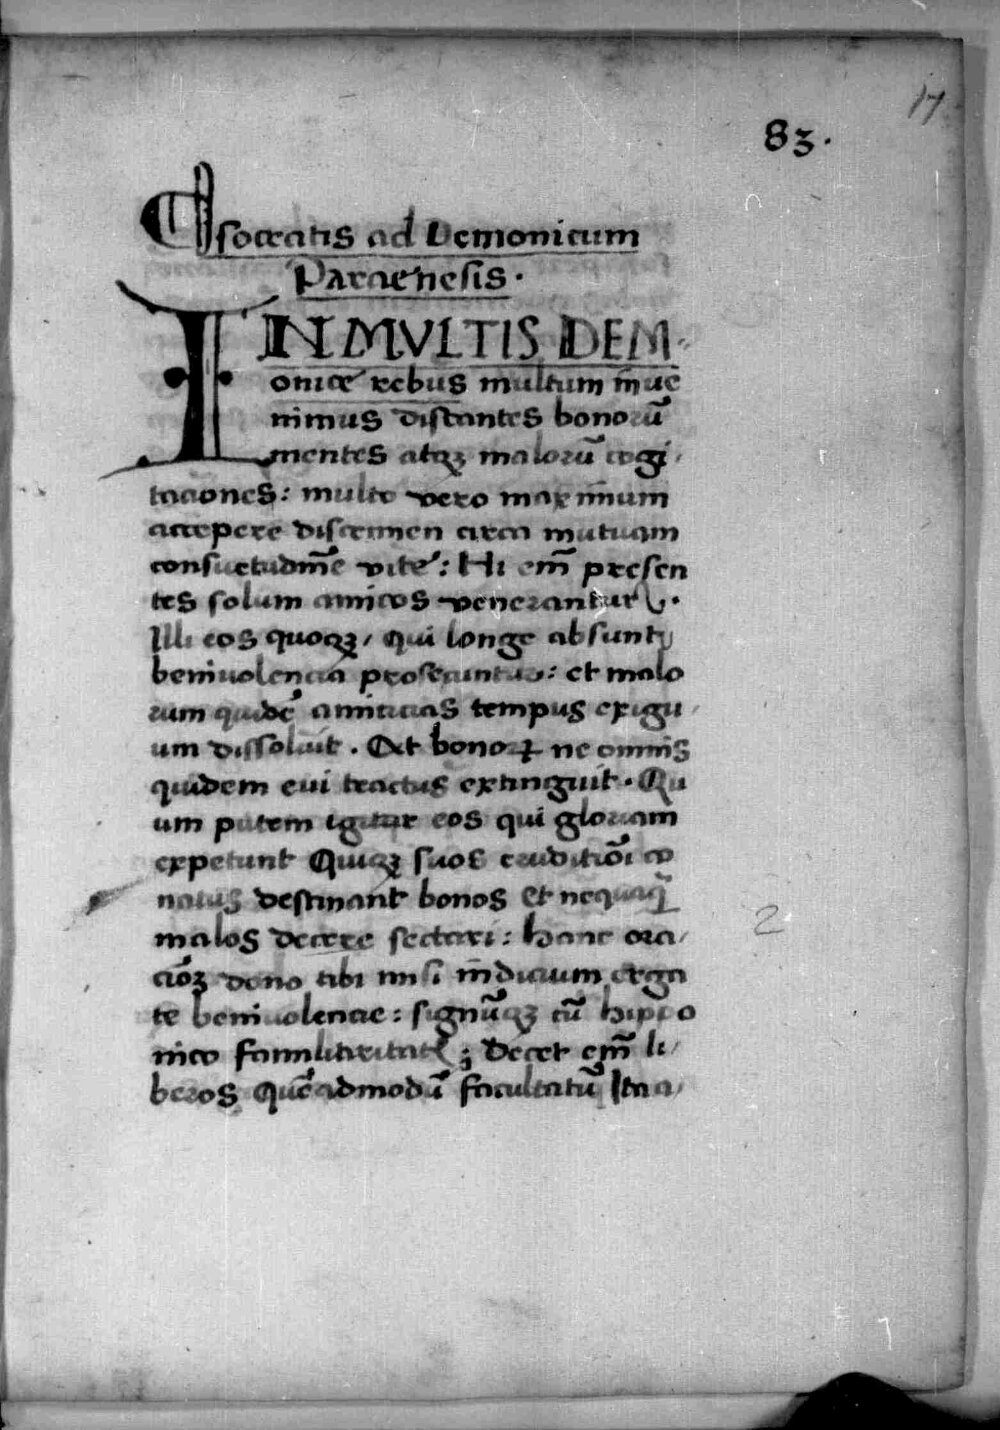 17
83.
Isocratis ad Demonicum
Paraenesis.
IN MVLTIS DEM-
onice rebus multum inue
nimus distantes bonorū
mentes atqꝫ malorū cogi/
taciones: multo vero maximum
accepere discrimen circa mutuam
consuetudinē vite: Hi em̄ presen
tes solum amicos venerantur.
Illi eos quoqꝫ/ qui longe absunt
beniuolencia prosecuntur: et malo
rum quidē amicicias tempus exigu/
um dissoluit. At bonoꝝ ne omnis
quidem eui tractus extinguit. Qu
um putem igitur eos qui gloriam
expetunt Quiqꝫ suos erudition̄i co
natus destinant bonos et nequaq̄
malos decere sectari: hanc ora/
ciōꝫ dono tibi misi indicium erga
te beniuolenciae: signūqꝫ cū hippo
nico familiaritatꝭ; Decet em̄ li/
beros Quēadmodū facultatū Ita a/
2